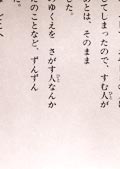 てしまったので、すむ人が
あとは、そのまま
した。
ゆくえを さがす人なんか
たのことなど、ずんずん
た。